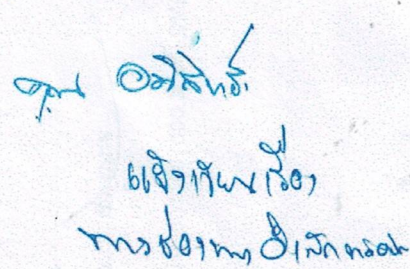 คุณ อรสินทร์
แจ้งเวียนเรื่อง
ทางช่องทางอิเล็กทรอนิ